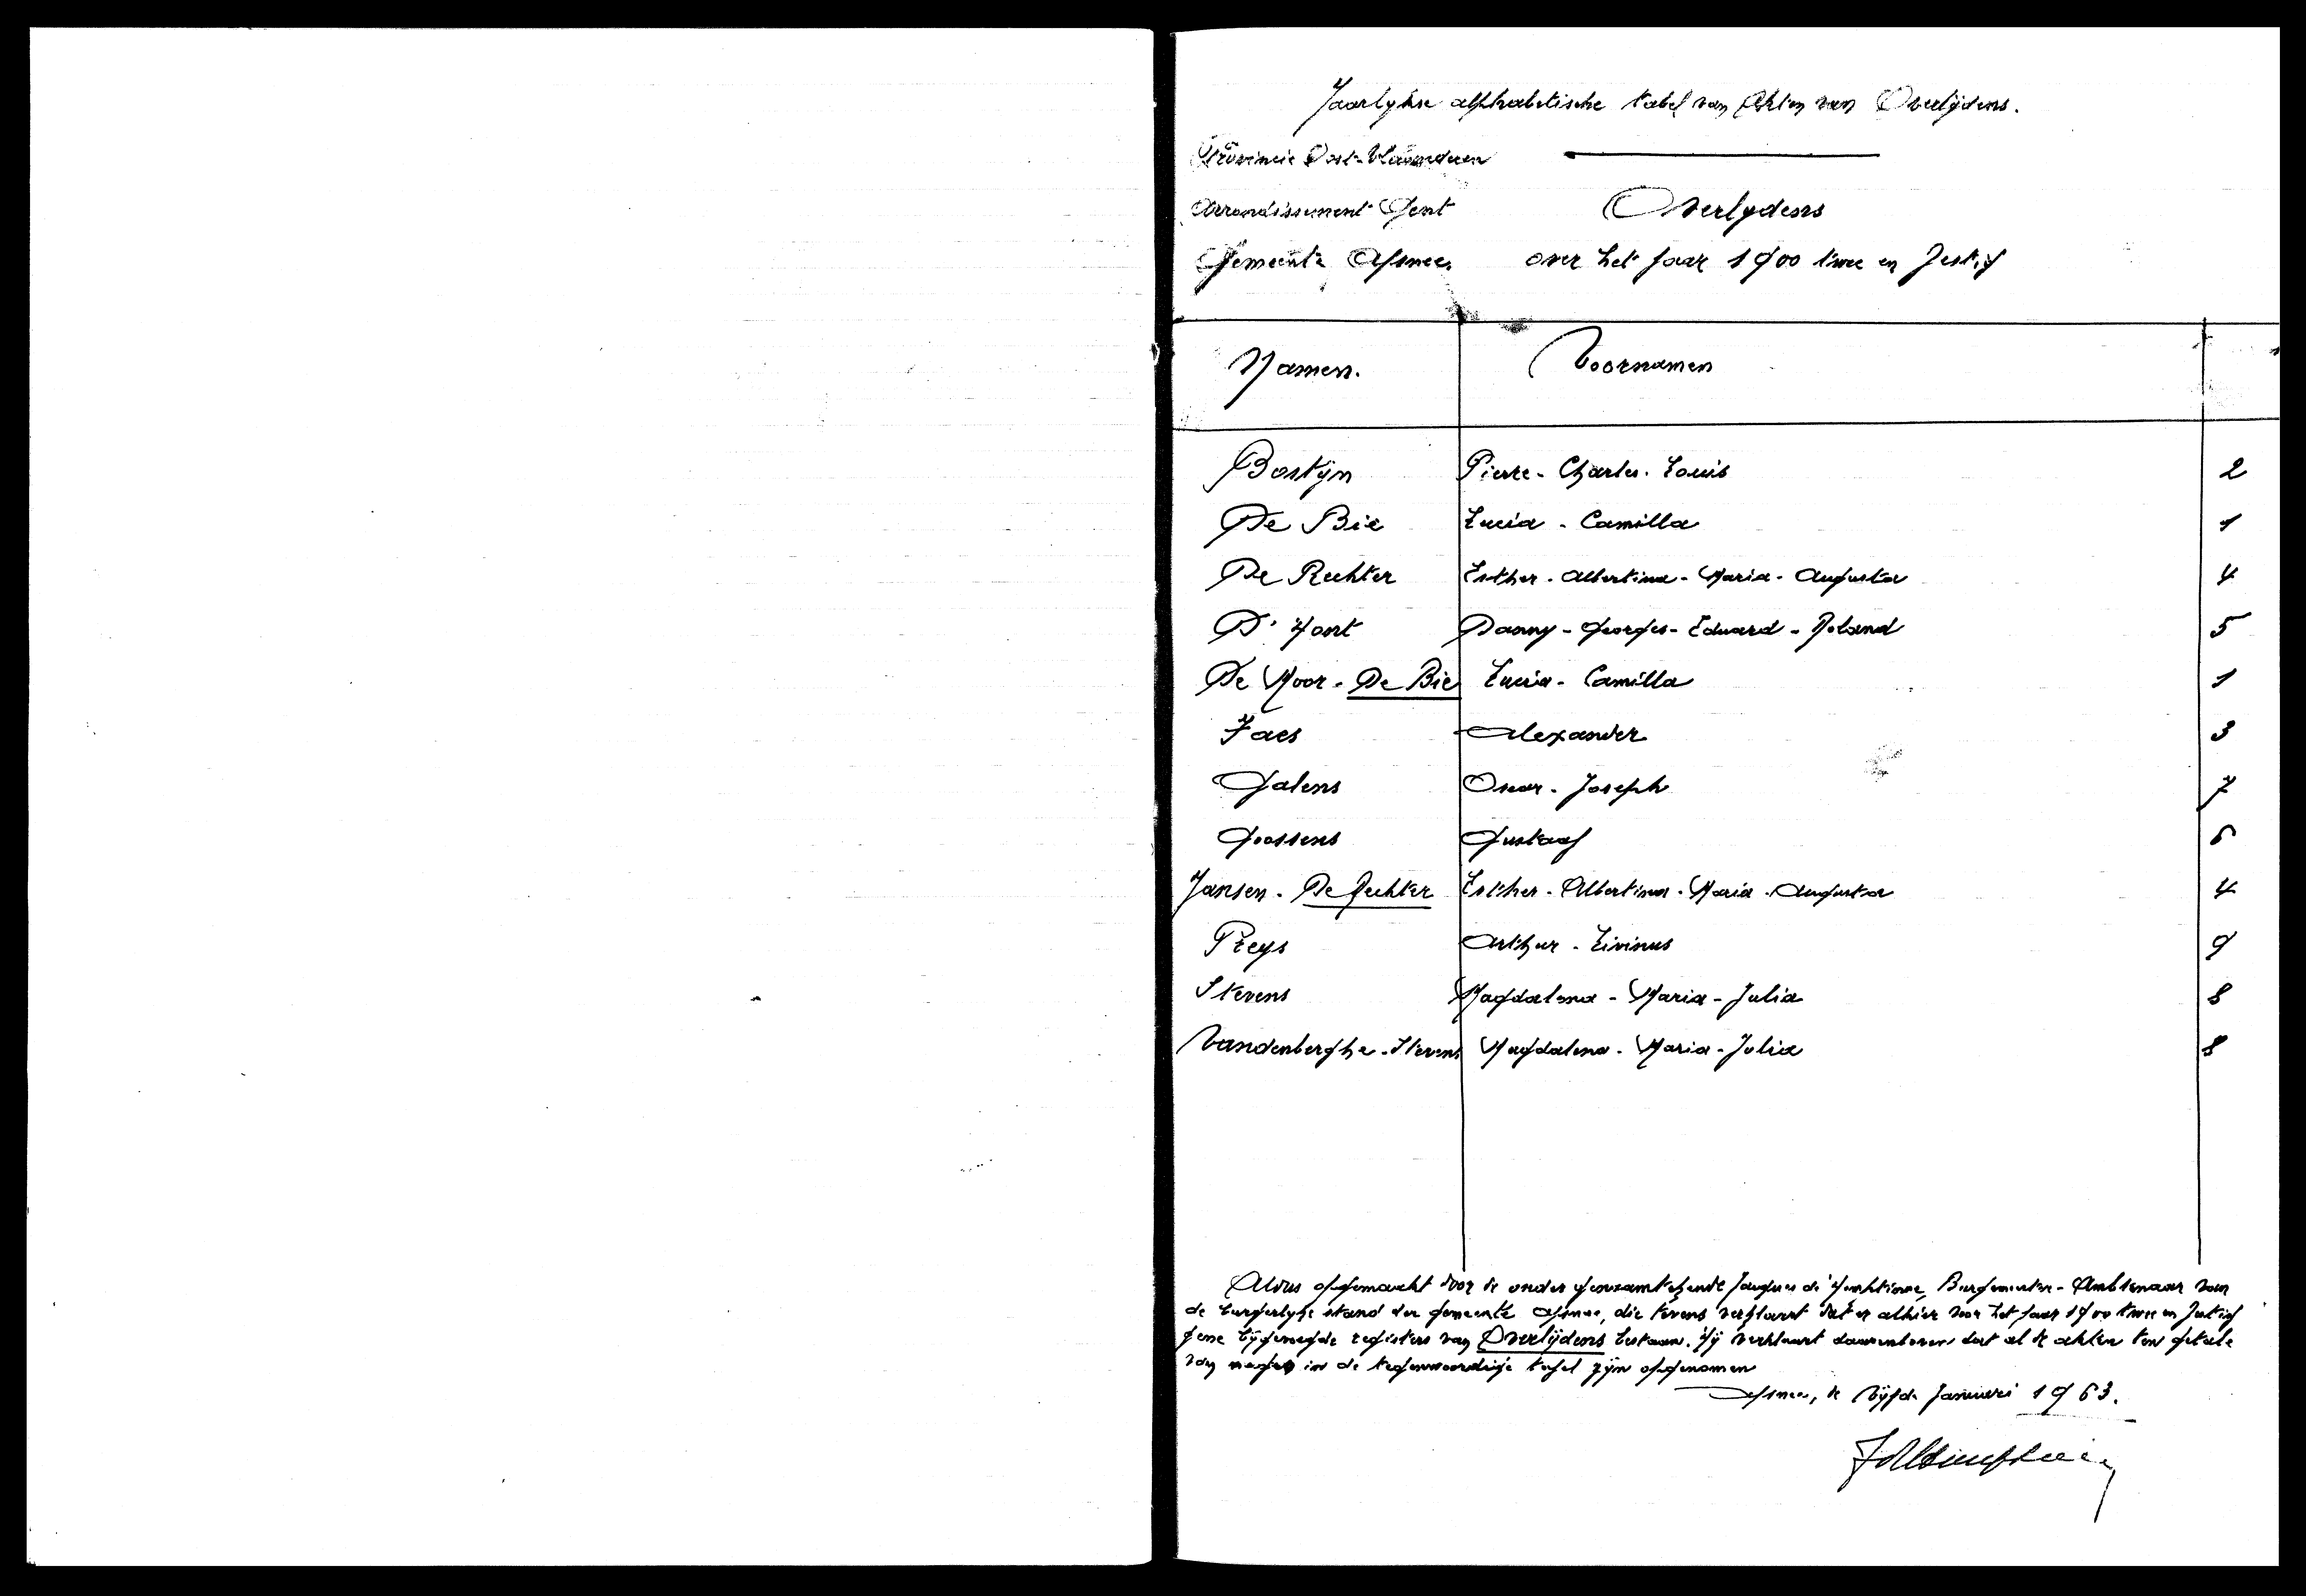 Jaarlykse alphabetische tabel van Akten van Overlijdens.
Provincie Oost-Vlaanderen
Arrondissement Gent
Overlydens
Gemeente Afsnee
over het jaar 1900 twee en zestig
Namen.
Voornamen
Bostijn Pierre - Charles - Louis 2
De Bie Lucia - Camilla 1
De Rechter Esther - Albertina - Maria - Augusta 4
D'Hont Danny - Georges - Eduard - Roland 5
De Moor - De Bie Lucia - Camilla 1
Faes Alexander 3
Galens Oscar - Joseph 7
Goossens Gustaaf 6
Jansen - De Rechter Esther - Albertina - Maria - Augusta 4
Preys Arthur - Livinus 9
Stevens Magdalena - Maria - Julia 8
Vandenberghe - Stevens Magdalena - Maria - Julia 8
Aldus opgemaakt door de onder Jaques de Burgemeester - Ambtenaar van
de burgerlyke stand der gemeente Afsnee, die tevens verklaart dat er alhier voor het jaar 1900 twee en zestig
gene bijgevoegde registers van Overlijdens bestaan. Hij verklaart daarenboven dat al de akten ten getale
van negen in de tegenwoordige tafel zijn opgenomen
Afsnee, de vijfde Januari 1963.